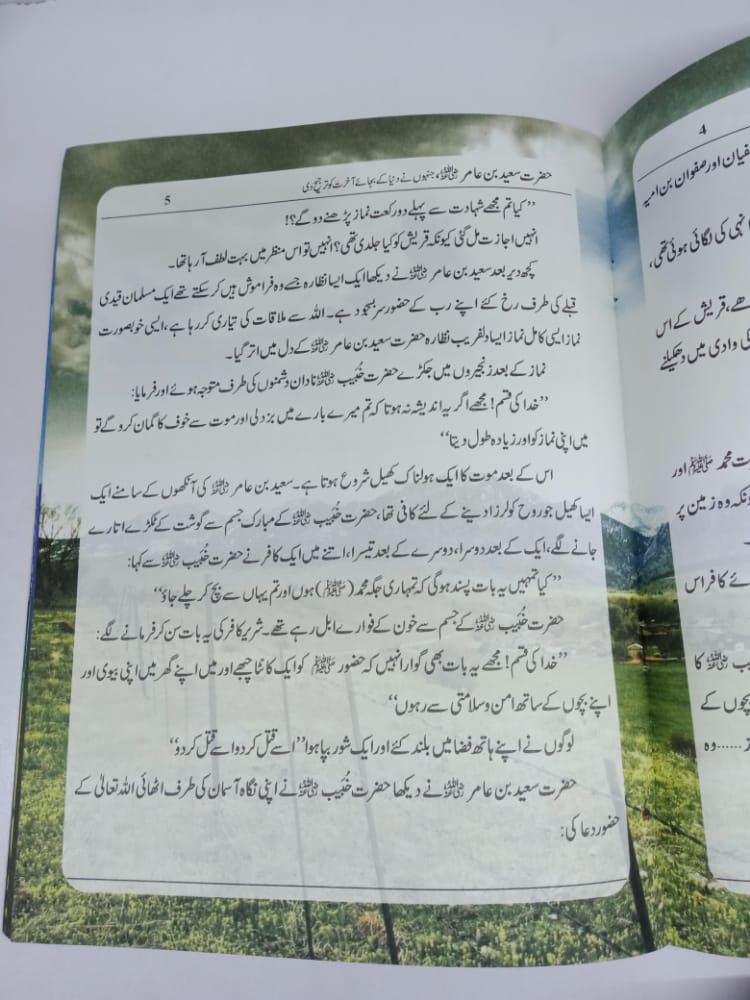 4
فیان اور صفوان بن امیہ
نہی کی لگائی ہوئی تھی،
ھے، قریش کے اس
کی وادی میں دھکیلنے
ت محمد ﷺ اور
نکہ وہ زمین پر
ئے کافر اس
یب ؓ کا
بچوں کے
ز ...... وہ
حضرت سعید بن عامر ؓ، جنہوں نے دنیا کے بجائے آخرت کو ترجیح دی
5
”کیا تم مجھے شہادت سے پہلے دو رکعت نماز پڑھنے دو گے؟!
انہیں اجازت مل گئی کیونکہ قریش کو کیا جلدی تھی؟ انہیں تو اس منظر میں بہت لطف آ رہا تھا۔
کچھ دیر بعد سعید بن عامر ؓ نے دیکھا ایک ایسا نظارہ جسے وہ فراموش نہیں کر سکتے تھے ایک مسلمان قیدی
قبلے کی طرف رخ کئے اپنے رب کے حضور سر بسجود ہے۔ اللہ سے ملاقات کی تیاری کر رہا ہے، ایسی خوبصورت
نماز ایسی کامل نماز ایسا دلفریب نظارہ حضرت سعید بن عامر ؓ کے دل میں اتر گیا۔
نماز کے بعد زنجیروں میں جکڑے حضرت خُبَیب ؓ نادان دشمنوں کی طرف متوجہ ہوئے اور فرمایا:
”خدا کی قسم! مجھے اگر یہ اندیشہ نہ ہوتا کہ تم میرے بارے میں بزدلی اور موت سے خوف کا گمان کرو گے تو
میں اپنی نماز کو اور زیادہ طول دیتا“
اس کے بعد موت کا ایک ہولناک کھیل شروع ہوتا ہے۔ سعید بن عامر ؓ کی آنکھوں کے سامنے ایک
ایسا کھیل جو روح کو لرزا دینے کے لئے کافی تھا، حضرت خُبَیب ؓ کے مبارک جسم سے گوشت کے ٹکڑے اتارے
جانے لگے، ایک کے بعد دوسرا، دوسرے کے بعد تیسرا، اتنے میں ایک کافر نے حضرت خُبَیب ؓ سے کہا:
”کیا تمہیں یہ بات پسند ہوگی کہ تمہاری جگہ محمد (ﷺ) ہوں اور تم یہاں سے بچ کر چلے جاؤ“
حضرت خُبَیب ؓ کے جسم سے خون کے فوارے ابل رہے تھے۔ شریر کافر کی یہ بات سن کر فرمانے لگے:
”خدا کی قسم! مجھے یہ بات بھی گوارا نہیں کہ حضور ﷺ کو ایک کانٹا چبھے اور میں اپنے گھر میں اپنی بیوی اور
اپنے بچوں کے ساتھ امن و سلامتی سے رہوں“
لوگوں نے اپنے ہاتھ فضا میں بلند کئے اور ایک شور بپا ہوا ”اسے قتل کر دو اسے قتل کر دو“
حضرت سعید بن عامر ؓ نے دیکھا حضرت خُبَیب ؓ نے اپنی نگاہ آسمان کی طرف اٹھائی اللہ تعالیٰ کے
حضور دعا کی: